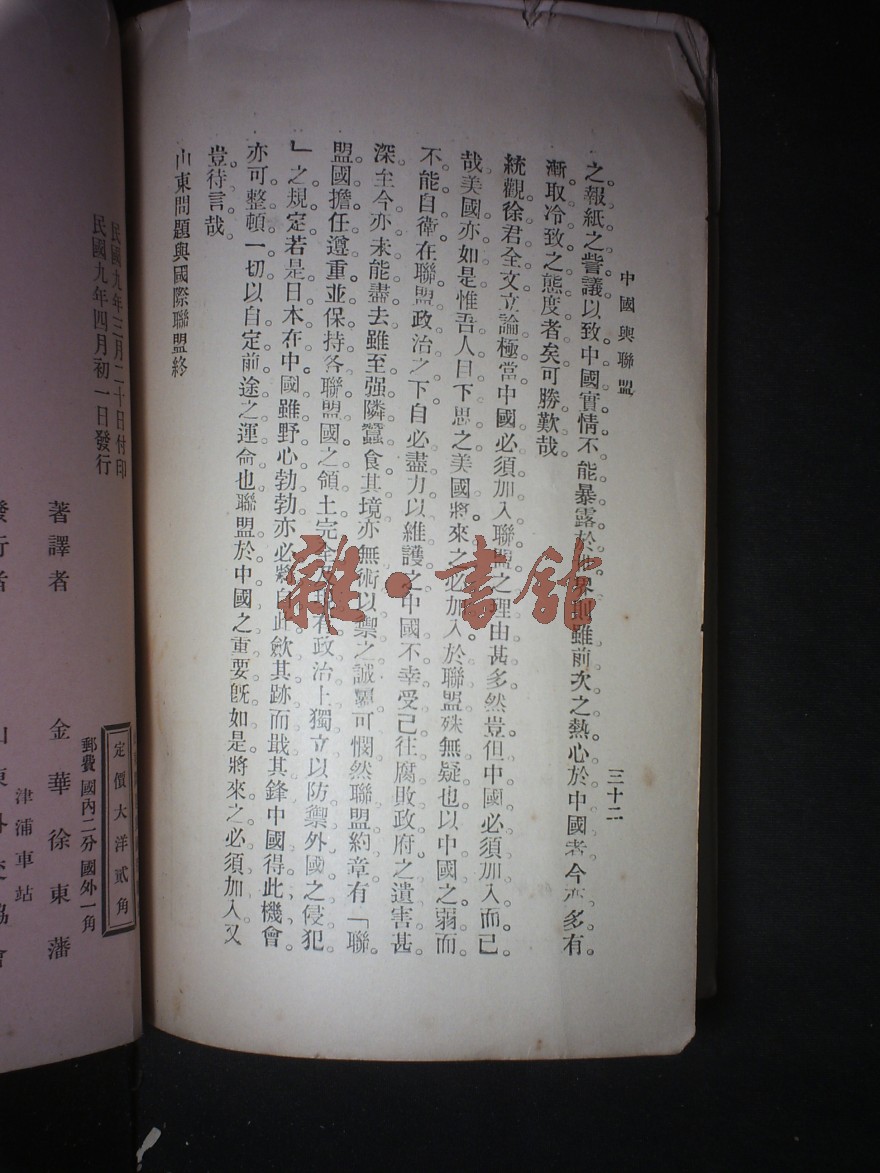 中國與聯盟
三十二
之報紙之訾議以致中國實情不能暴露於世界則雖前次之熱心於中國者今亦多有
漸取冷致之態度者矣可勝歎哉
統觀徐君全文立論極當中國必須加入聯盟之理由甚多然豈但中國必須加入而已
哉美國亦如是惟吾人日下思之美國將來之必加入於聯盟殊無疑也以中國之弱而
不能自衛在聯盟政治之下自必盡力以維護之中國不幸受已往腐敗政府之遺害甚
深至今亦未能盡去雖至强隣蠶食其境亦無術以禦之誠屬可憫然聯盟約章有「聯
盟國擔任遵重並保持各聯盟國之領土完全及現有政治上獨立以防禦外國之侵犯
」之規定若是日本在中國雖野心勃勃亦必將自此歛其跡而戢其鋒中國得此機會
亦可整頓一切以自定前途之運命也聯盟於中國之重要旣如是將來之必須加入又
豈待言哉
山東問題與國際聯盟終
民國九年三月二十日付印
民國九年四月初一日發行
著譯者 金華徐東藩
發行者 山東外交協會
津浦車站
郵費 國內二分 國外一角
定價大洋貳角
雜·書館